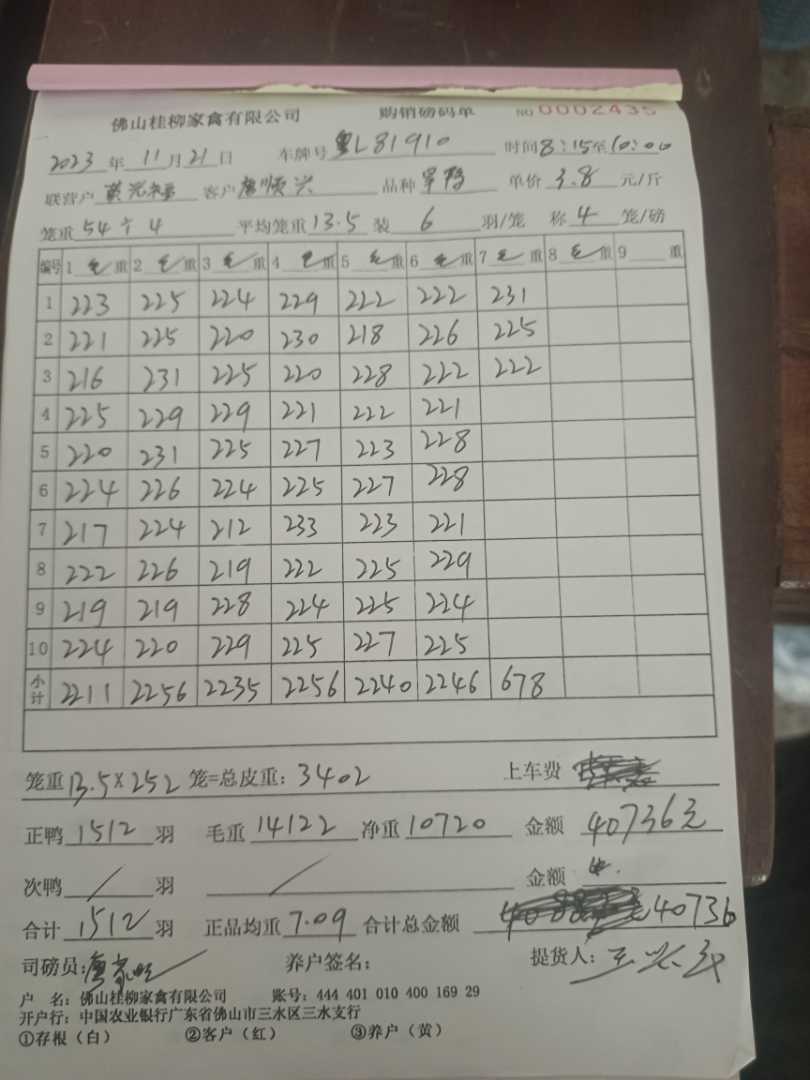 佛山桂柳家禽有限公司 购销磅码单 NO 0002435
2023年11月21日 车牌号 粤L81910 时间8:15至10:00
联营户 客户唐顺兴 品种 单价3.8元/斤
笼重54÷4 平均笼重13.5 装6羽/笼 称4笼/磅
编号 1毛重 2毛重 3毛重 4毛重 5毛重 6毛重 7毛重 8毛重 9 重
1 223 225 224 229 222 222 231
2 221 225 220 230 218 226 225
3 216 231 225 220 228 222 222
4 225 229 229 221 222 221
5 220 231 225 227 223 228
6 224 226 224 225 227 228
7 217 224 212 233 223 221
8 222 226 219 222 225 229
9 219 219 228 224 225 224
10 224 220 229 225 227 225
小计 2211 2256 2235 2256 2240 2246 678
笼重13.5×252笼=总皮重:3402 上车费
正鸭1512羽 毛重14122 净重10720 金额40736元
次鸭/羽 / 金额
合计1512羽 正品均重7.09 合计总金额 40736
司磅员: 养户签名: 提货人:
户 名:佛山桂柳家禽有限公司 账号:444 401 010 400 169 29
开户行:中国农业银行广东省佛山市三水区三水支行
①存根(白) ②客户(红) ③养户(黄)